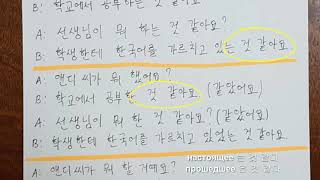 B: 학교에서 공부하는 것 같아요.
A: 선생님이 뭐 하는 것 같아요?
B: 학생한테 한국어를 가르치고 있는 것 같아요
A: 앤디 씨가 뭐 했어요?
B: 학교에서 공부한 것 같아요. (같았어요)
A: 선생님이 뭐 한 것 같아요? (같았어요)
B: 학생한테 한국어를 가르치고 있었는 것 같아요
A: 앤디 씨가 뭐 할 거예요?
настоящее 는 것 같다
прошедшее 은 것 같다